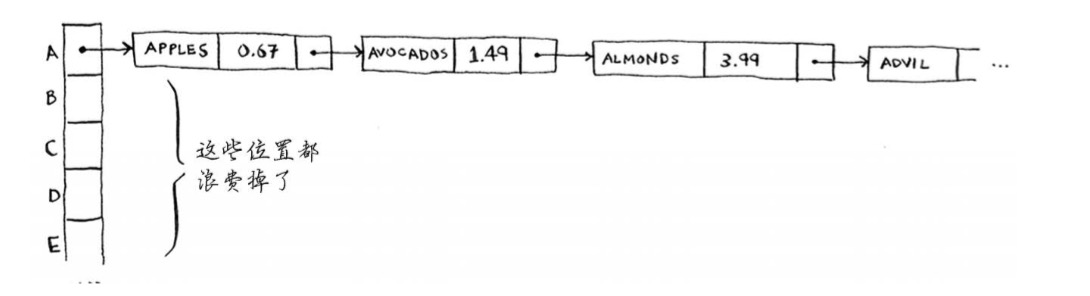 A APPLES 0.67 AVOCADOS 1.49 ALMONDS 3.99 ADVIL ...
B
C
这些位置都
浪费掉了
D
E